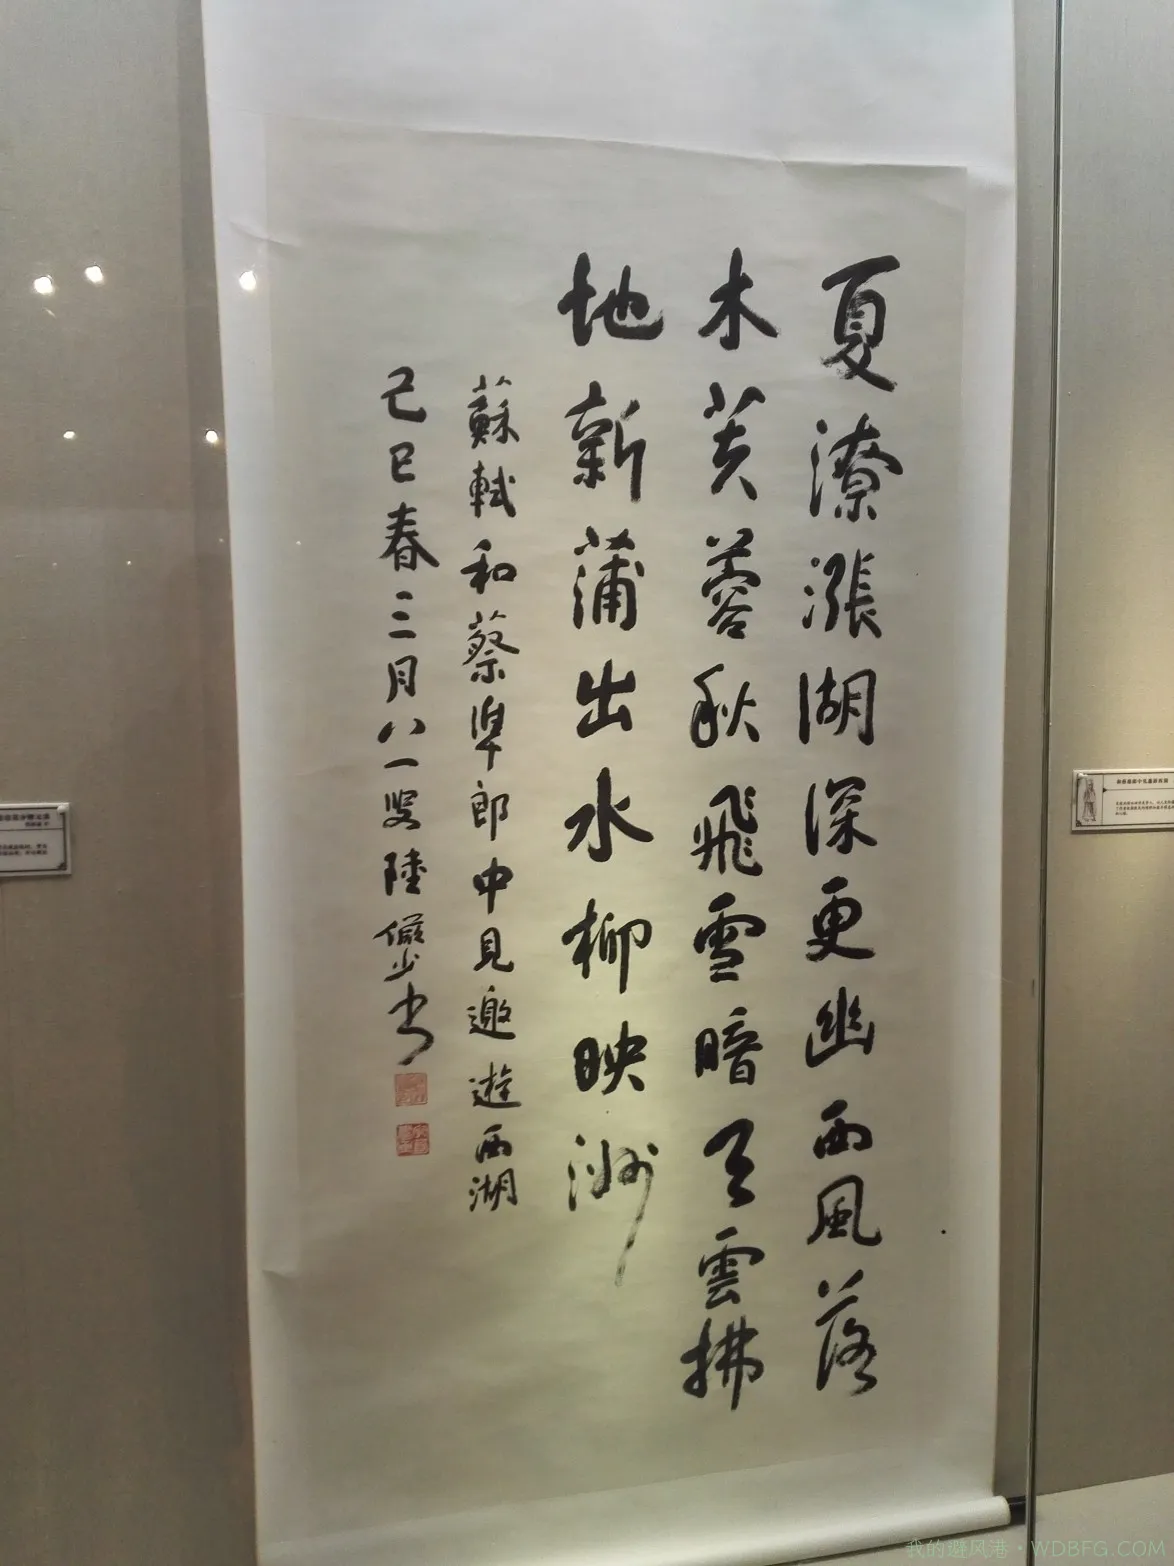 夏潦漲湖深更幽西風落
木芙蓉秋飛雪暗天雲拂
地新蒲出水柳映洲
蘇軾和蔡準郎中見邀遊西湖
己巳春三月八一叟陸儼少書
我的避风港·WDBFG.COM